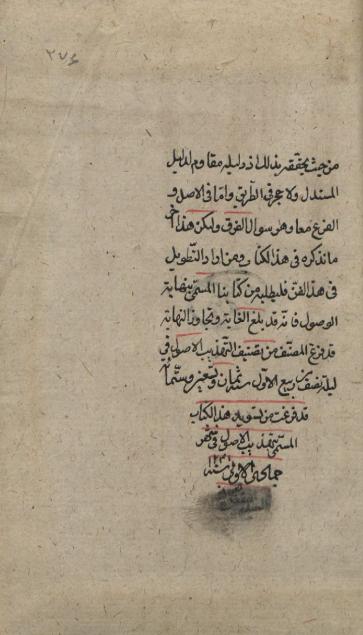 ٢٧٤
من حيث يحققه بذلك اذ دليله مقاوم لدليل
المستدل ولا حجر فى الطريق واما فى الاصل و
الفرع معا وهو سوال الفرق وليكن هذا اخر
ما نذكره فى هذا الكتاب ومن اراد التطويل
فى هذا الفن فليطلبه من كتابنا المسمى بنهاية
الوصول فانه قد بلغ الغاية وتجاوز النهاية
قد فرغ المصنف من تصنيف التهذيب الاصولى فى
ليلة نصف ربيع الاول ثمان وتسعين وستمأ
قد فرغت من تسويد هذا الكتاب
المسمى تهذيب الاصول فى شهر
جمادى الاولى سنة